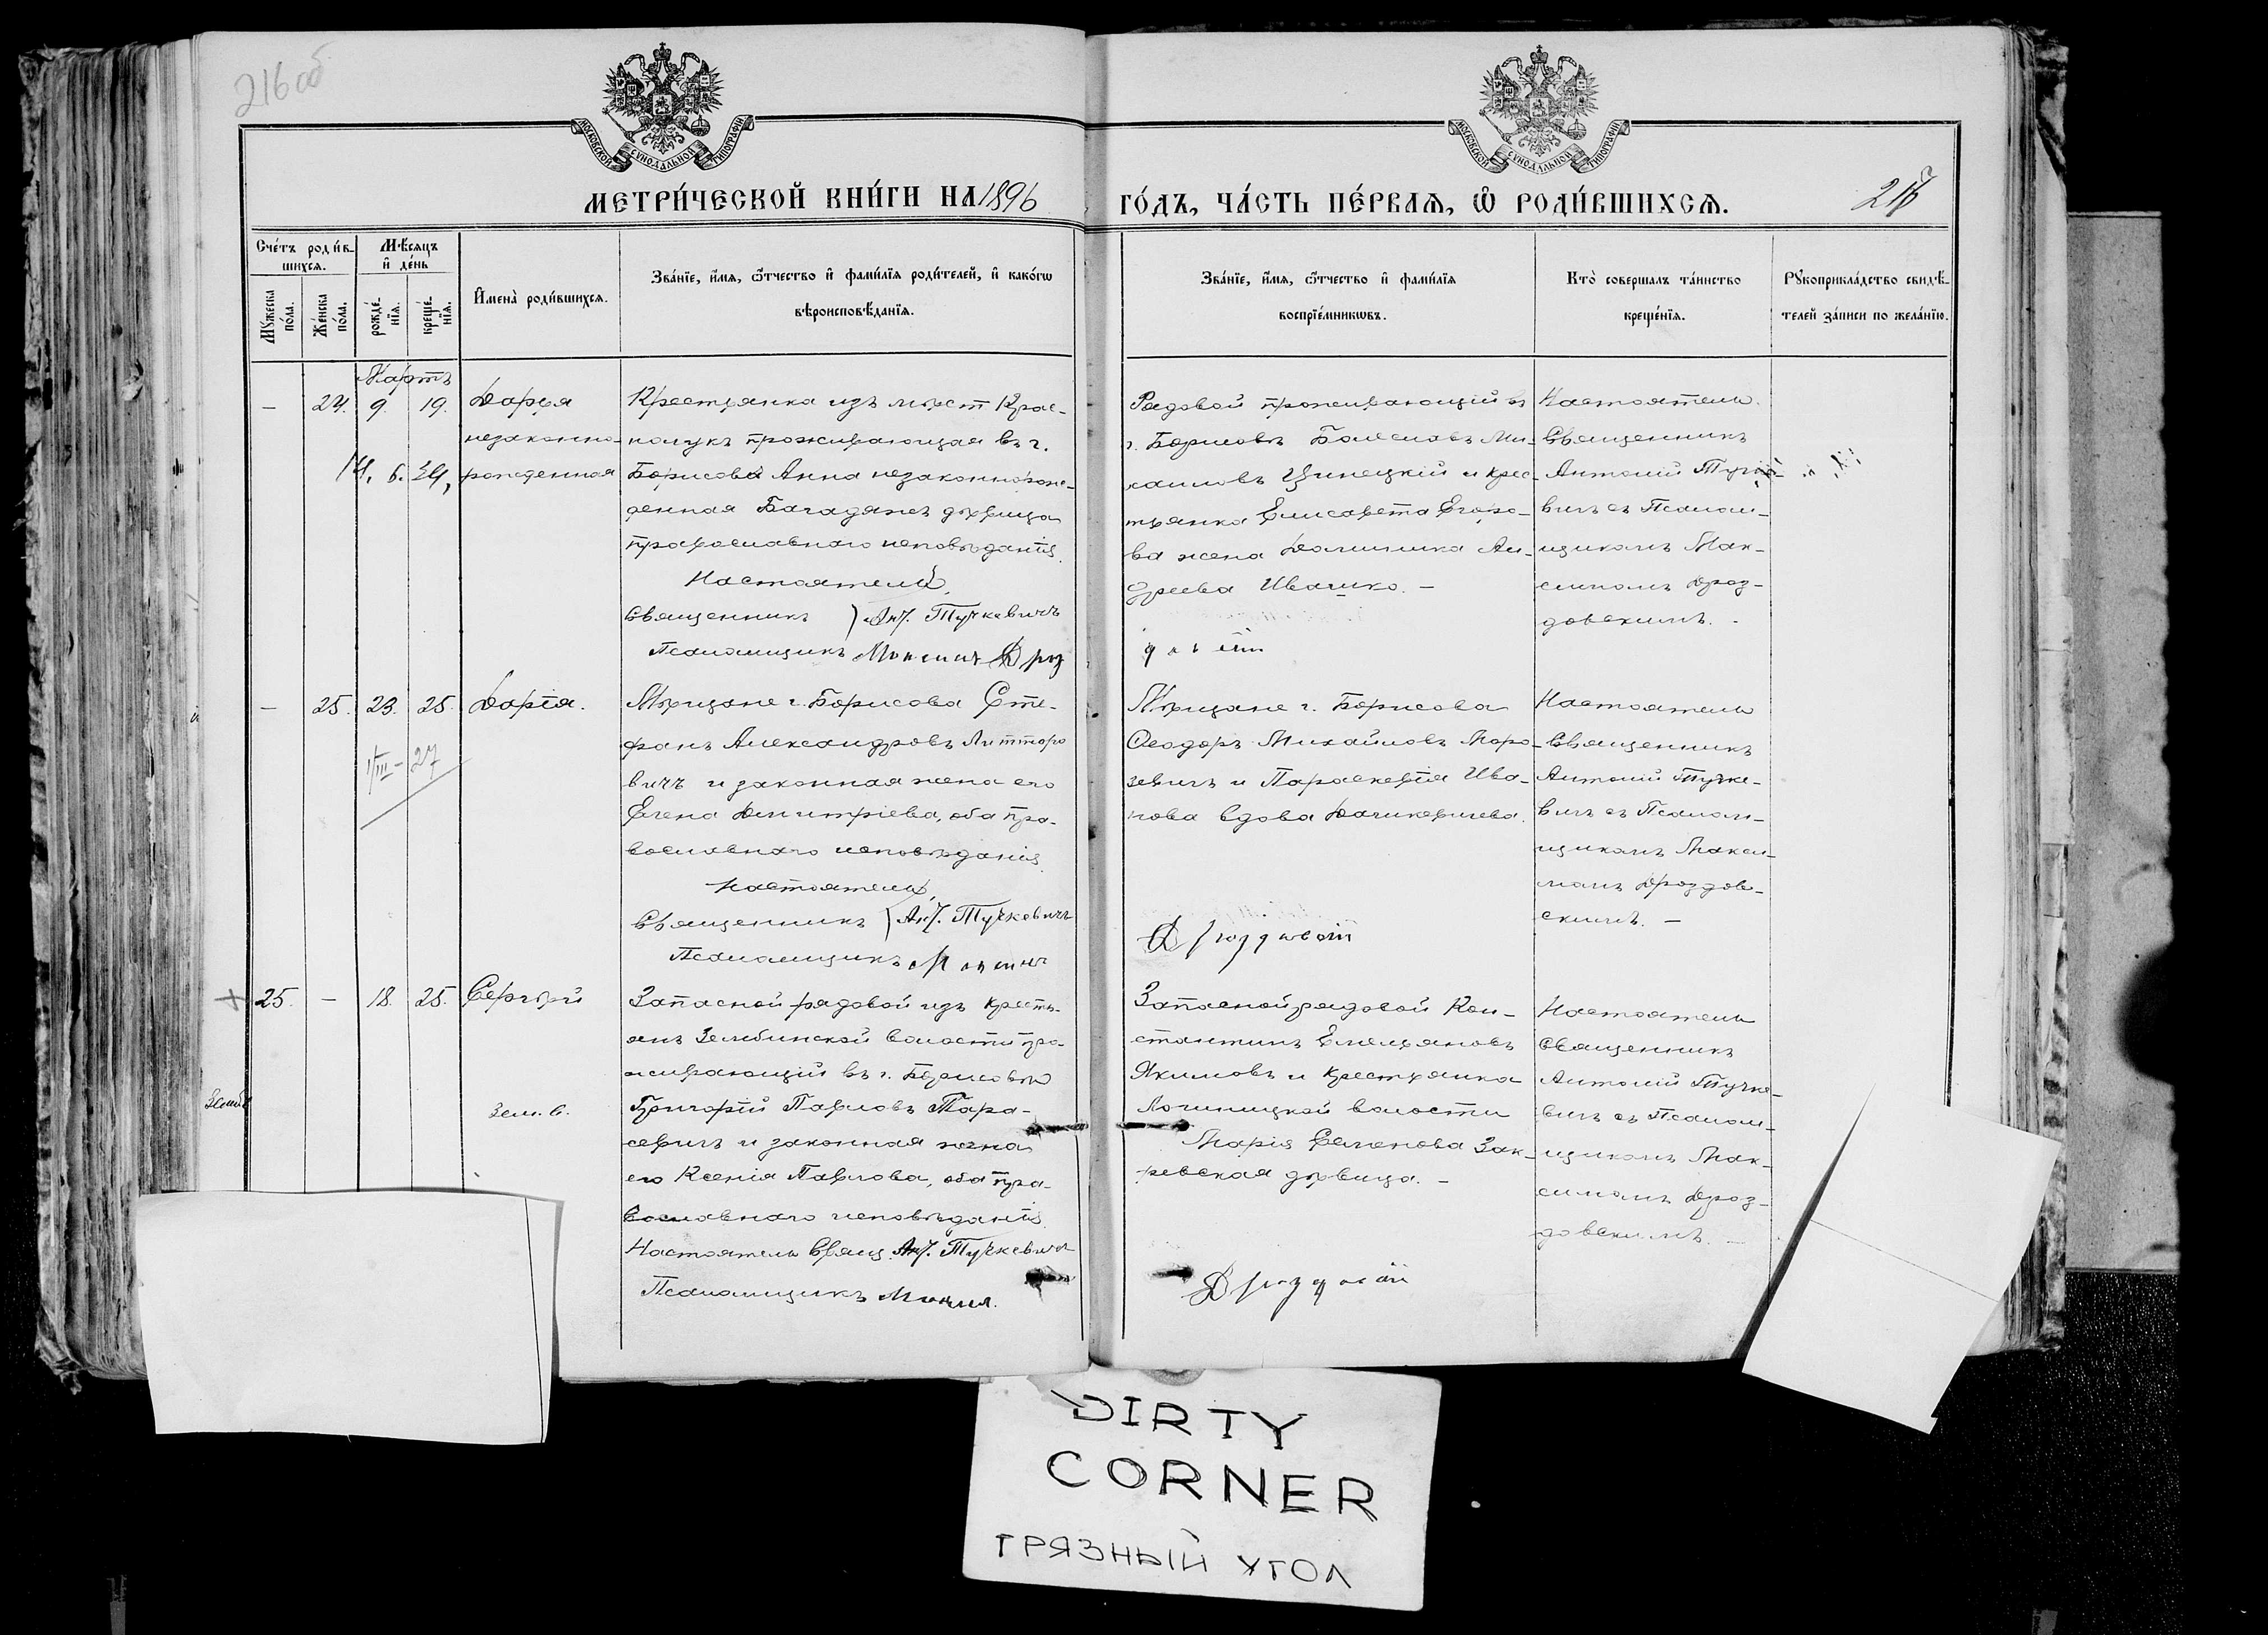 216 об
МОСКОВСКОЙ СУНОДАЛЬНОЙ ТИПОГРАФІИ
МОСКОВСКОЙ СУНОДАЛЬНОЙ ТИПОГРАФІИ
МЕТРИ́ЧЕСКОЙ КНИ́ГИ НА 1896
ГО́ДЪ, ЧА́СТЬ ПЕ́РВАѦ, Ѽ РОДИ́ВШИХСѦ.
217
Сче́тъ роди́в-
шихсѧ.
Мѣсяцъ
и҆ де́нь
Мꙋжеска
по́ла.
Же́нска
по́ла.
рожде́-
нїѧ.
креще́-
нїѧ.
И҆мена̀ роди́вшихсѧ.
Зва́нїе, и҆́мѧ, ѻ҆́тчество и҆ фами́лїѧ роди́телей, и҆ како́гѡ
вѣроисповѣ́данїѧ.
Зва́нїе, и҆́мѧ, ѻ҆́тчество и҆ фами́лїѧ
воспрїе́мникѡвъ.
Кто̀ совершалъ та́инство
креще́нїѧ.
Рꙋкоприкла́дство свидѣ́-
телей за́писи по жела́нїю.
Мартъ
— 24. 9. 19. Дарья
незаконно-
рожденная
14. 6. 34,
Крестьянка изъ мѣст Крас-
нолукъ проживающая въ г.
Борисовѣ Анна незаконнорож-
денная Багадяжъ дѣвица
православнаго исповѣданія
Настоятель,
Священникъ } Ант. Тучкевичъ
Псаломщикъ Максимъ Дроз
Рядовой проживающій въ
г. Борисовѣ Болеславъ Ми-
хайловъ Цинецкій и крес-
тьянка Елисавета Егоро-
ва жена Доминика Ан-
дреева Ивашко. —
Настоятель
Священникъ
Антоній Тучке-
вичъ съ Псалом-
щикомъ Мак-
симомъ Дроз-
довскимъ. —
— 25. 23. 25. Дарія.
1/III - 27
Мѣщане г. Борисова Сте-
фанъ Александровъ
вичъ и законная жена его
Елена Димитріева, оба пра-
вославнаго исповѣданія
Настоятель,
Священникъ } Ант. Тучкевичъ
Псаломщикъ Максимъ
Мѣщане г. Борисова
Ѳеодоръ Михайловъ Моро-
зевичъ и Параскевія Ива-
нова вдова
Дроздовскій
Настоятель
Священникъ
Антоній Тучке-
вичъ съ Псалом-
щикомъ Макси-
момъ Дроздов-
скимъ. —
+ 25. — 18. 25. Сергѣй
Земб
Зем. в.
Запасной рядовой изъ кресть-
янъ Зембинской волости про-
живающій въ г. Борисовѣ
Григорій Павловъ Тара-
севичъ и законная жена
его Ксенія Павлова, оба пра-
вославнаго исповѣданія
Настоятель Свящ. Ант. Тучкевичъ
Псаломщикъ Максим.
Запасной рядовой Кон-
стантинъ Емельяновъ
Якимовъ и крестьянка
Логиницкой волости
Марія Семенова Зак-
ревская дѣвица. —
Дроздовскій
Настоятель
Священникъ
Антоній Тучке-
вичъ съ Псалом-
щикомъ Мак-
симомъ Дроз-
довскимъ. —
DIRTY
CORNER
ГРЯЗНЫЙ УГОЛ